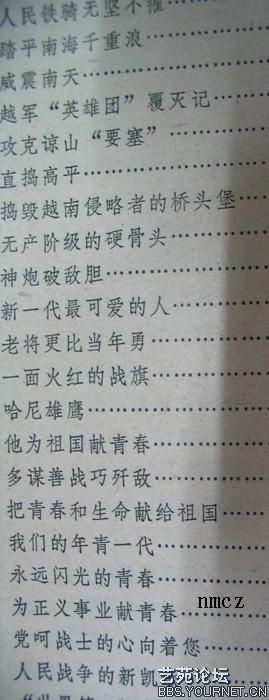 人民铁骑无坚不摧……
踏平南海千重浪……
威震南天……
越军“英雄团”覆灭记……
攻克谅山“要塞”……
直捣高平……
捣毁越南侵略者的桥头堡……
无产阶级的硬骨头……
神炮破敌胆……
新一代最可爱的人……
老将更比当年勇……
一面火红的战旗……
哈尼雄鹰……
他为祖国献青春……
多谋善战巧歼敌……
把青春和生命献给祖国……
我们的年青一代……
永远闪光的青春……
nmcz
为正义事业献青春……
党呵战士的心向着您……
艺苑论坛
人民战争的新凯
BBS.YOURNET.CN